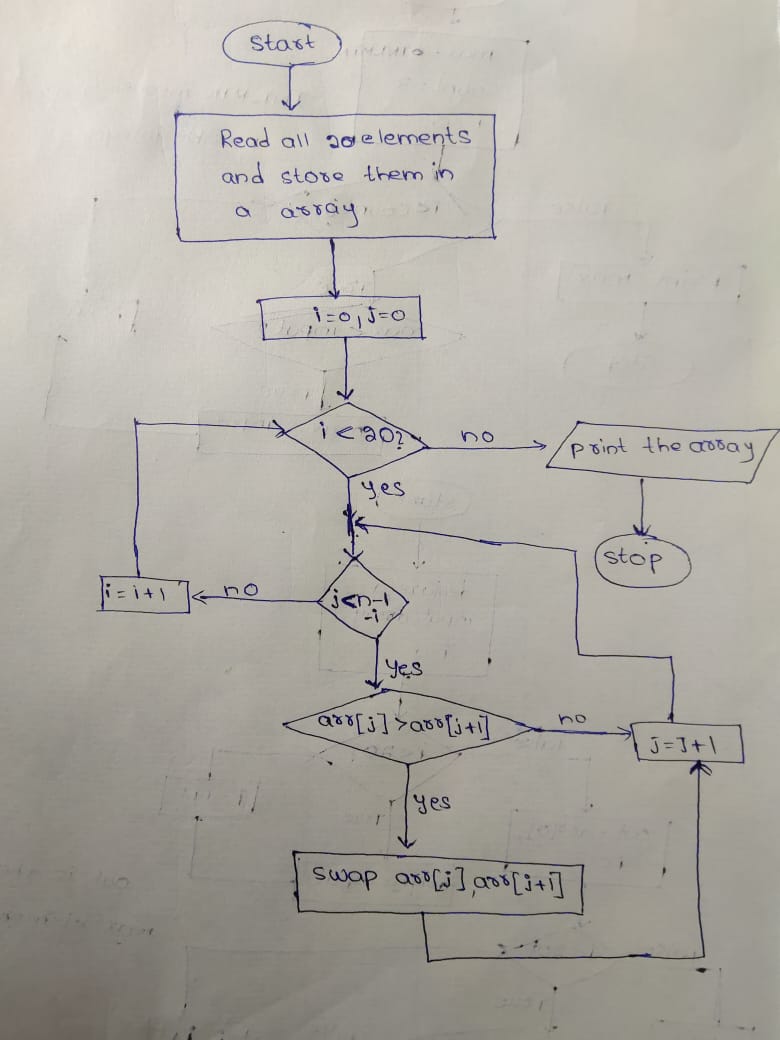 Start
Read all 20 elements
and store them in
a array
i=0, j=0
i < 20?
no
print the array
stop
yes
j<n-1
-i
no
i = i+1
yes
arr[j] > arr[j+1]
no
j=J+1
yes
swap arr[j], arr[j+1]